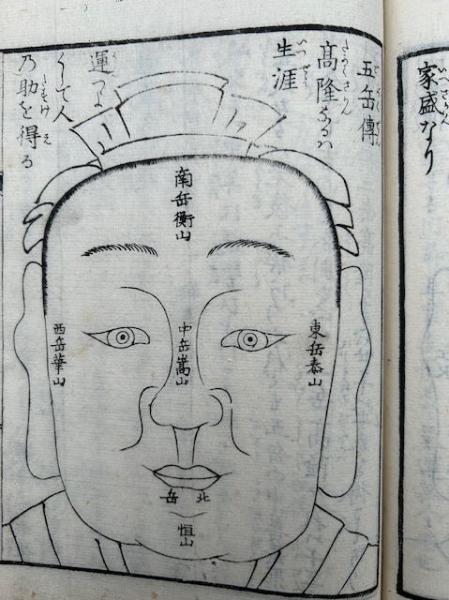 家盛なり
五岳傳
髙隆なるハ
生涯
運つよ
くして人
乃助を得る
南岳衡山
東岳泰山
中岳嵩山
西岳華山
北岳
恒山